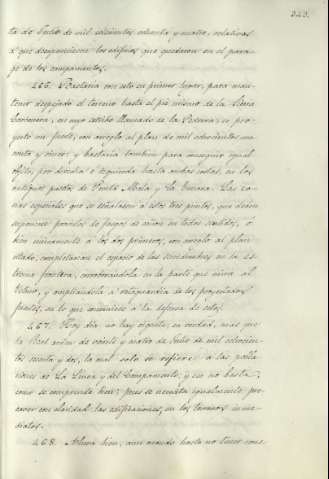 323.
ta de Julio de mil ochocientos ochenta y cuatro, relativas
á que desapareciesen los edificios que quedaron en el para-
ge de los campamentos.
466. Bastaria con esto en primer lugar, para man-
tener despejado el terreno hasta el pié mismo de la Sierra
Carbonera, en cuyo estribo llamado de la se pro-
yectó un fuerte, con arreglo al plan de mil ochocientos no-
venta y cinco; y bastaria tambien para conseguir igual
efecto, por derecha é izquierda hasta ambas costas, en los
antiguos puestos de Punta Mala y La Tunara. Las zo-
nas especiales que se señalasen á estos tres puntos, que deben
suponerse provistos de fuegos de cañon en todos sentidos, ó
bien únicamente á los dos primeros, con arreglo al plan
citado, completarian el espacio de las servidumbres en la es-
trema frontera, en la parte que mira al
, y ampliándola á retaguardia de los proyectados
fuertes, en lo que conviniere á la defensa de estos.
467. Hoy dia no hay vigente, en verdad, mas que
la Real órden de veinte y cuatro de Julio de mil ochocien-
tos sesenta y dos, la cual solo se refiere á las pobla-
ciones de La Línea y del Campamento, y eso no basta,
como se comprende bien; pues se necesita igualmente pre-
caver con claridad las edificaciones, en los terrenos inme-
diatos.
468. Ahora bien, aun cuando hasta no tener cono-